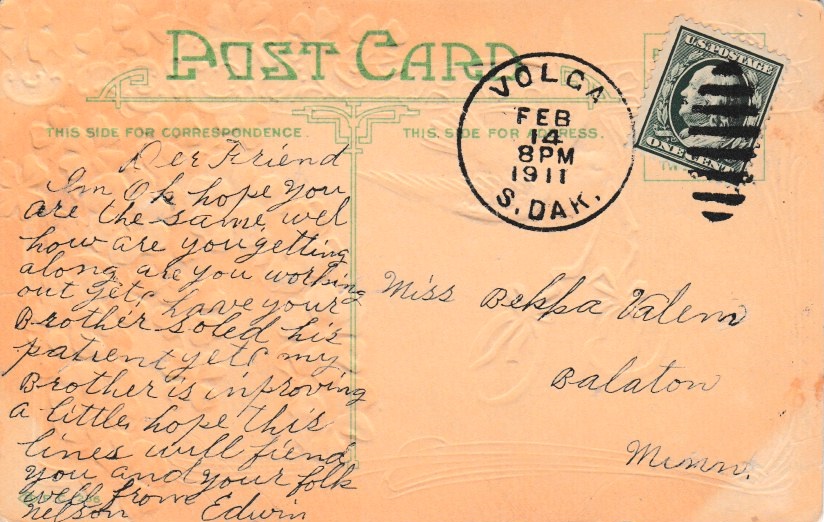 POST CARD
U.S. POSTAGE
ONE CENT
VOLGA
FEB
14
8PM
1911
S. DAK.
THIS SIDE FOR CORRESPONDENCE.
THIS SIDE FOR ADDRESS.
Dee Friend
Im Ok hope you
are the same, wel
how are you getting
along are you working
out yet, have your
Brother soled his
patient yet my
Brother is inproving
a little, hope this
lines will fiend
you and your folk
well from
Nelson Edwin
Miss Bekka Valem
Balaton
Minn.